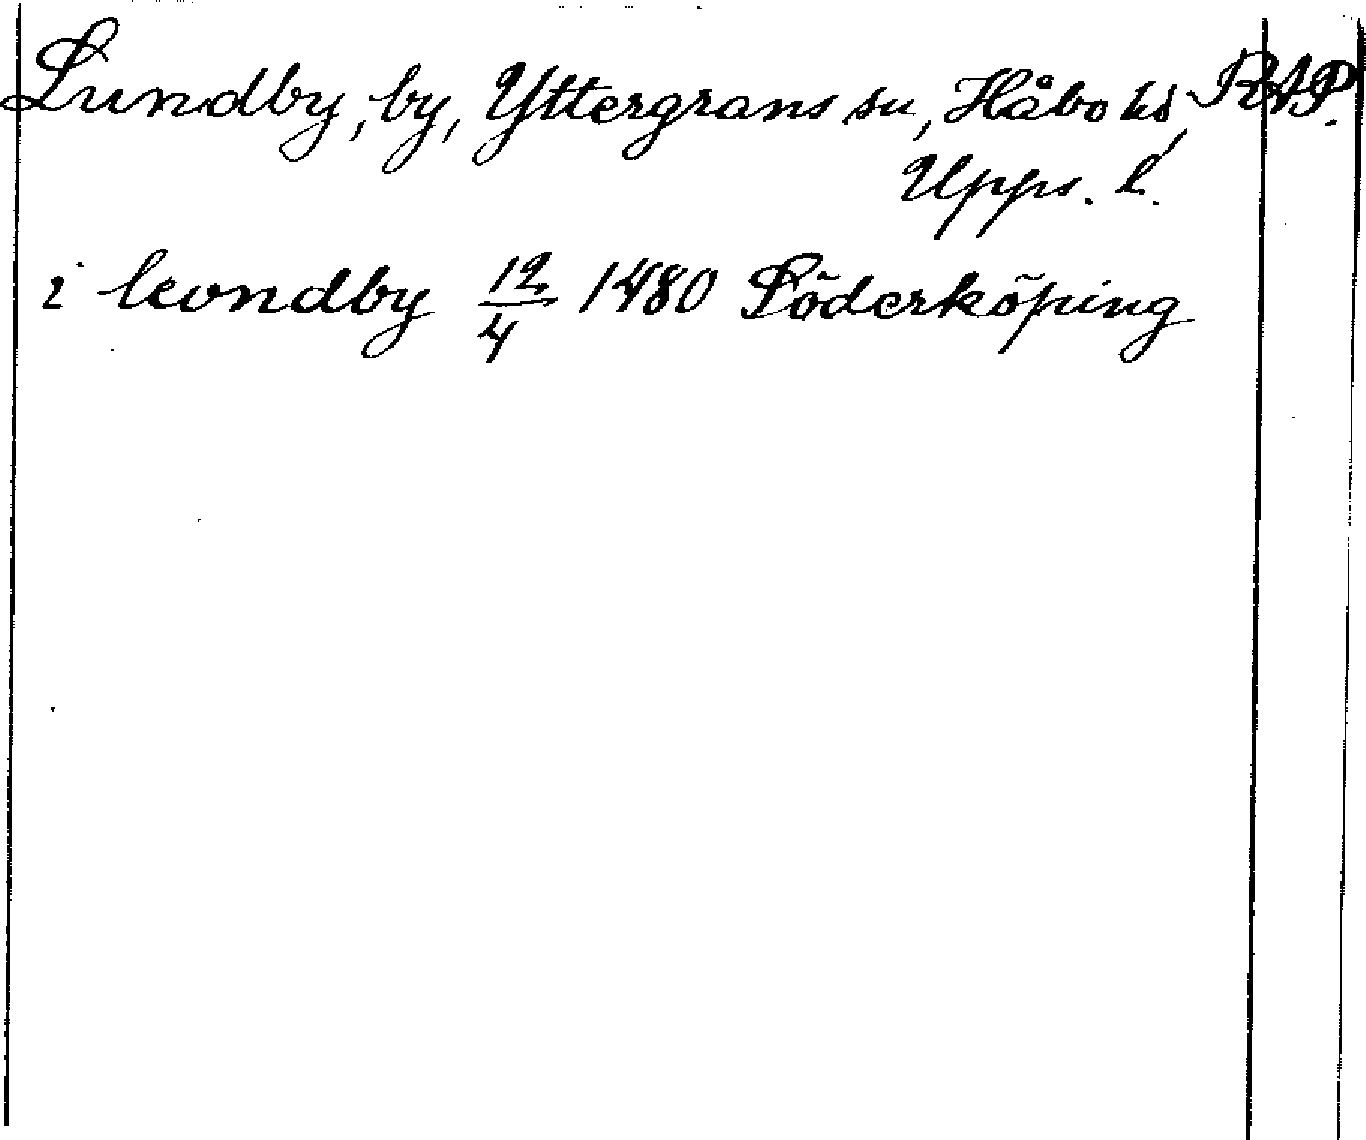 Lundby, by, Yttergrans sn, Håbo hd, RAP.
Upps. l.
i leondby 12/4 1480 Söderköping